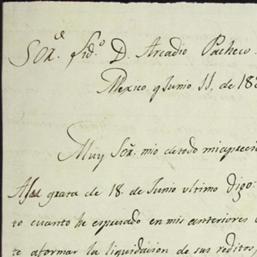 Sor. D. Arcadio Pacheco.
Mexico y Junio 11. de 18
Muy Sor. mio de todo mi apreci
grata de 18. de Junio ultimo digo:
to cuanto he espuesto en mis anteriores
te aformar la liquidacion de sus reditos,